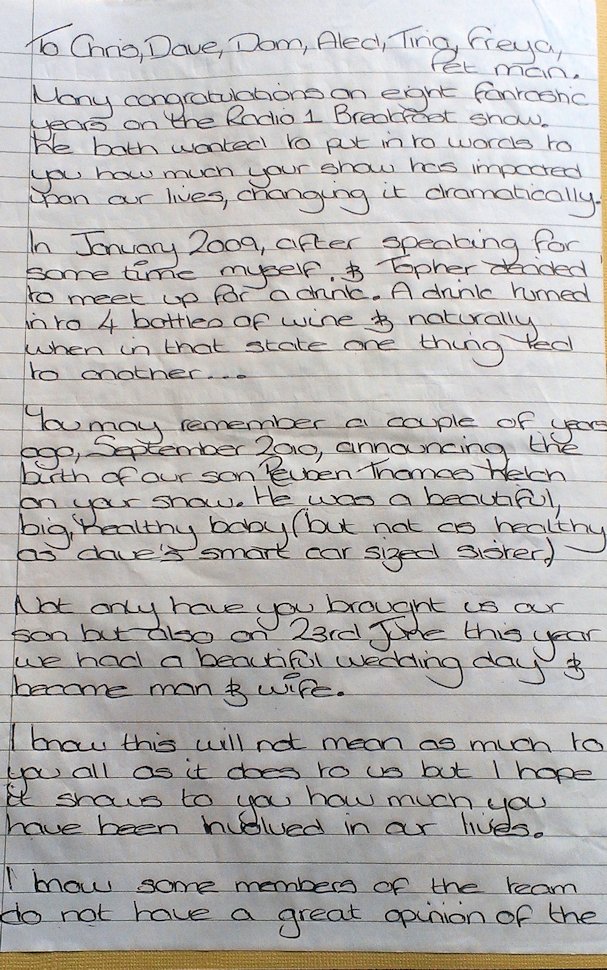 To Chris, Dave, Dom, Aled, Tina, Freya,
Pet man.
Many congratulations on eight fantastic
years on the Radio 1 Breakfast show.
We both wanted to put in to words to
you how much your show has impacted
upon our lives, changing it dramatically.
In January 2009, after speaking for
some time myself & Topher decided
to meet up for a drink. A drink turned
in to 4 bottles of wine & naturally
when in that state one thing led
to another....
You may remember a couple of years
ago, September 2010, announcing the
birth of our son Reuben Thomas Welch
on your show. He was a beautiful,
big, healthy baby (but not as healthy
as dave's smart car sized sister)
Not only have you brought us our
son but also on 23rd June this year
we had a beautiful wedding day &
became man & wife.
I know this will not mean as much to
you all as it does to us but I hope
it shows to you how much you
have been involved in our lives.
I know some members of the team
do not have a great opinion of the